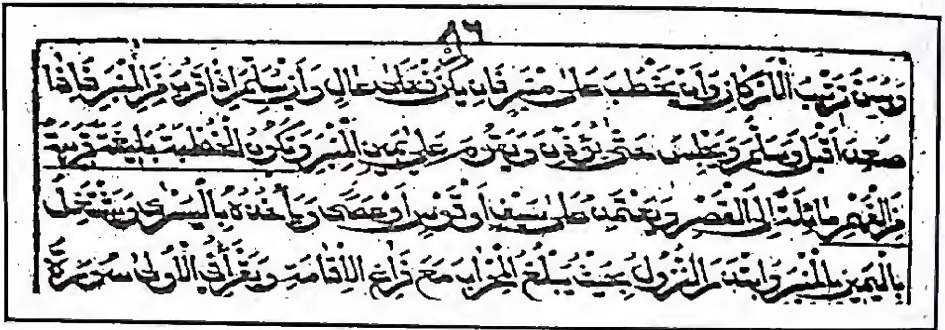 ٨٦
ويسن ترتيب الاركان وان يخطب على منبر فان يكن فعلى عال وان يسلم اذا قرب من المنبر فاذا
صعد اقبل وسلم ويجلس حتى يؤذن ويقوم على يمين المنبر ويكون الخطبة بليغة قريبة
من الفهم مائلة الى القصر ويعتمد على سيف او قوس او عصى وياخذه باليسرى ويشتغل
باليمين بالمنبر وابتدر النزول بحيث يبلغ المحراب مع فراغ الاقامة ويقرأ في الاولى سورة